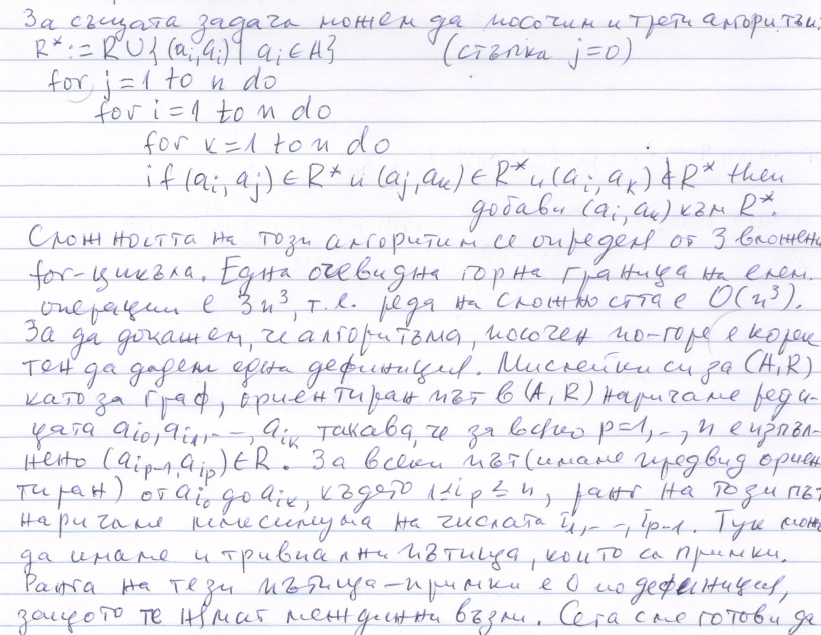 За същата задача можем да посочим и трети алгоритъм:
R* := R ∪ {(ai, ai) | ai ∈ A} (стъпка j=0)
for j=1 to n do
for i=1 to n do
for k=1 to n do
if (ai, aj) ∈ R* и (aj, ak) ∈ R* и (ai, ak) ∉ R* then
добави (ai, ak) към R*.
Сложността на този алгоритъм се определя от 3 вложени
for-цикъла. Една очевидна горна граница на елем.
операции е 3n³, т.е. реда на сложността е O(n³).
За да докажем, че алгоритъма, посочен по-горе е корек
тен да дадем една дефиниция. Мислейки си за (A, R)
като за граф, ориентиран път в (A, R) наричаме реди-
цата ai0, ai1, --, aik такава, че за всяко p=1, -, n е изпъл-
нено (aip-1, aip) ∈ R. За всеки път (имаме предвид ориен
тиран) от ai0 до aik, където 1 ≤ ip ≤ n, ранг на този път
наричаме максимума на числата i1, --, ip-1. Тук може
да имаме и тривиални пътища, които са примки.
Ранга на тези пътища-примки е 0 по дефиниция,
защото те нямат междинни възли. Сега сме готови да